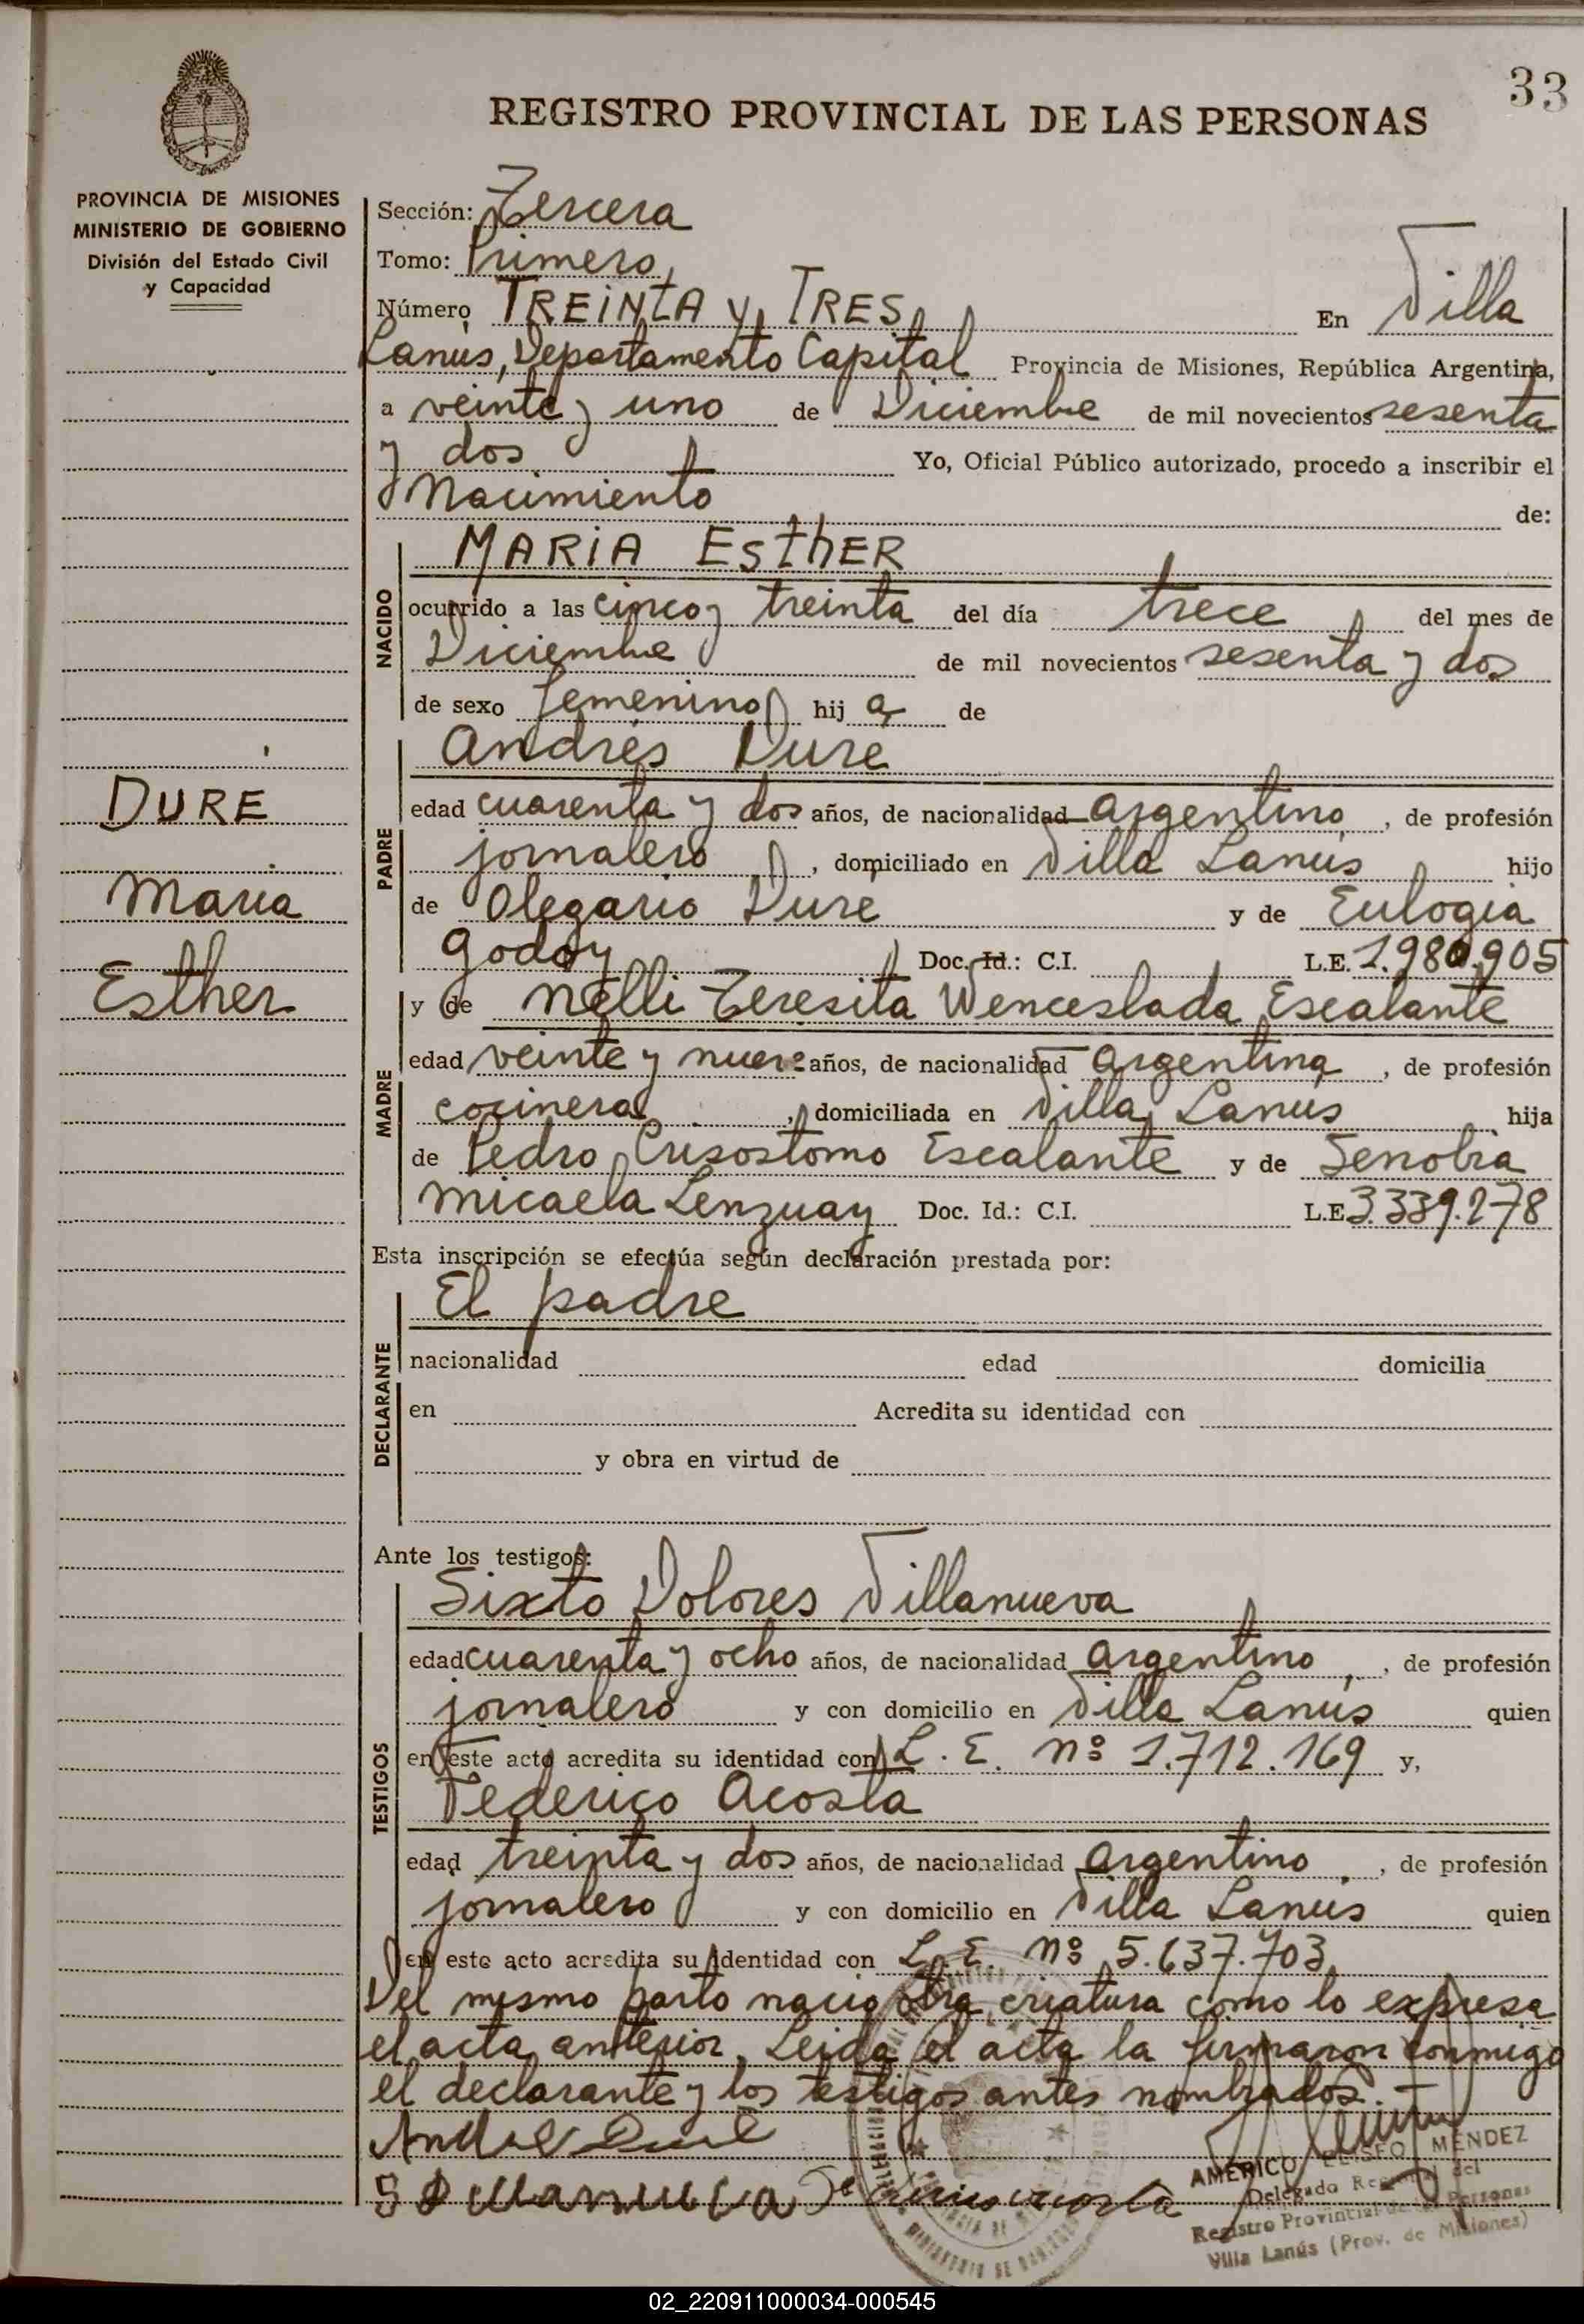 33
REGISTRO PROVINCIAL DE LAS PERSONAS
PROVINCIA DE MISIONES
MINISTERIO DE GOBIERNO
División del Estado Civil
y Capacidad
Sección: Tercera
Tomo: Primero
Número TREINTA y TRES En Villa
Lanús, Departamento Capital Provincia de Misiones, República Argentina,
a veinte y uno de Diciembre de mil novecientos sesenta
y dos Yo, Oficial Público autorizado, procedo a inscribir el
Nacimiento de:
NACIDO
MARIA EsthER
ocurrido a las cinco y treinta del día trece del mes de
Diciembre de mil novecientos sesenta y dos
de sexo femenino hij a de
PADRE
Andrés Dure
edad cuarenta y dos años, de nacionalidad argentino, de profesión
jornalero, domiciliado en Villa Lanús hijo
de Olegario Dure y de Eulogia
Godoy Doc. Id.: C.I. L.E. 1.980.905
DURE
Maria
Esther
MADRE
y de Nelli Teresita Wenceslada Escalante
edad veinte y nueve años, de nacionalidad argentina, de profesión
cocinera, domiciliada en Villa Lanús hija
de Pedro Crisostomo Escalante y de Senobia
Micaela Lenzuay Doc. Id.: C.I. L.E. 3.339.278
Esta inscripción se efectúa según declaración prestada por:
DECLARANTE
El padre
nacionalidad edad domicilia
en Acredita su identidad con
y obra en virtud de
Ante los testigos:
TESTIGOS
Sixto Dolores Villanueva
edad cuarenta y ocho años, de nacionalidad argentino, de profesión
jornalero y con domicilio en Villa Lanús quien
en este acto acredita su identidad con L. E. nº 1.712.169 y,
Federico Acosta
edad treinta y dos años, de nacionalidad argentino, de profesión
jornalero y con domicilio en Villa Lanús quien
en este acto acredita su identidad con L. E. nº 5.637.703
Del mismo parto nacio otra criatura como lo expresa
el acta anterior. Leida el acta la firmaron conmigo
el declarante y los testigos antes nombrados. -
AMERICO ELISEO MENDEZ
Delegado Regional del
Registro Provincial de las Personas
Villa Lanús (Prov. de Misiones)
02_220911000034-000545